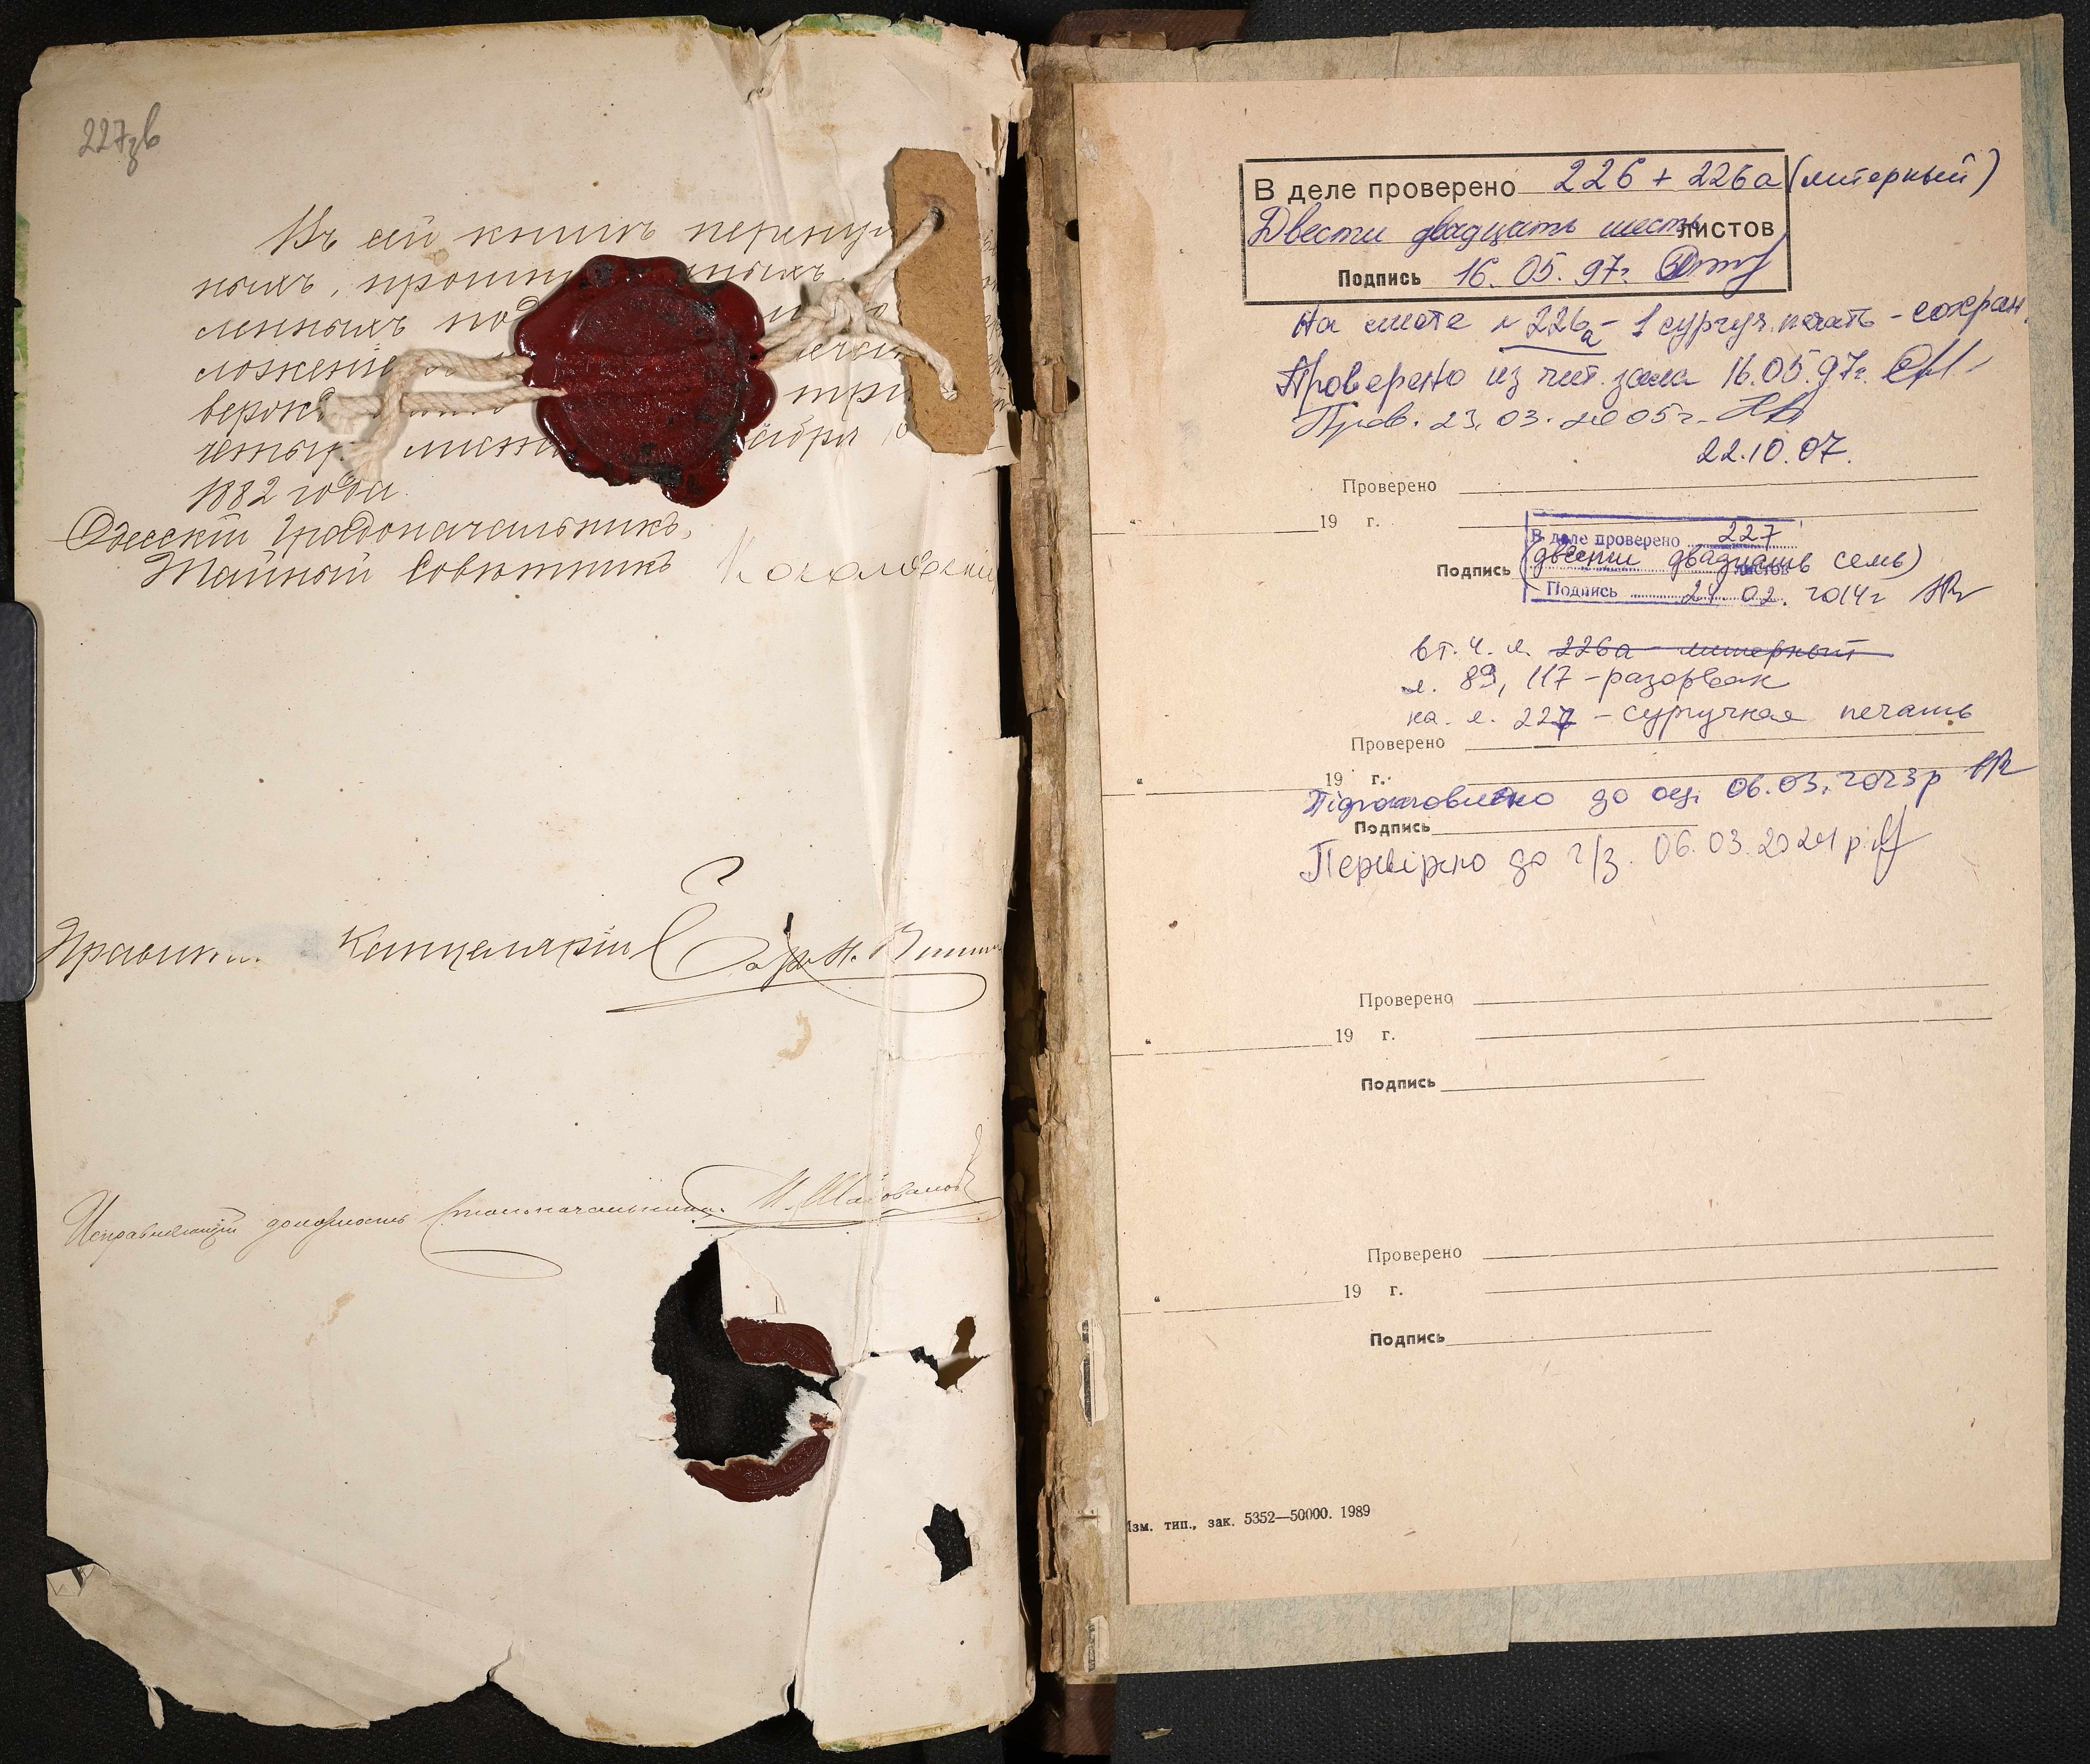 227зв
Въ сей книгѣ перену
ныхъ, прошну ныхъ
ленныхъ под
ложеніе
верокъ три
четыр листа абря
1882 года.
Одесскій Градоначальникъ,
Тайный Совѣтникъ Косаговскій
Правит. Канцеляріи
Исправляющій должность Столоначальника
В деле проверено 226 + 226а (литерный)
Двести двадцать шесть листов
Подпись 16.05.97г.
На листе № 226а - 1 сургуч. печать - сохран.
Проверено из чит. зала 16.05.97г.
Пров. 23.03.2005г.
22.10.07.
Проверено
" 19 г.
В деле проверено 227
(двести двадцать семь)
листов
Подпись
Подпись 24.02.2014г
в т.ч. л. 226а - литерный
л. 89, 117 - разорван
на л. 227 - сургучная печать
Проверено
" 19 г.
Підготовлено до оц. 06.03.2023р
Подпись
Перевірено до ч/з. 06.03.2024р.
Проверено
" 19 г.
Подпись
Проверено
" 19 г.
Подпись
Изм. тип., зак. 5352—50000. 1989